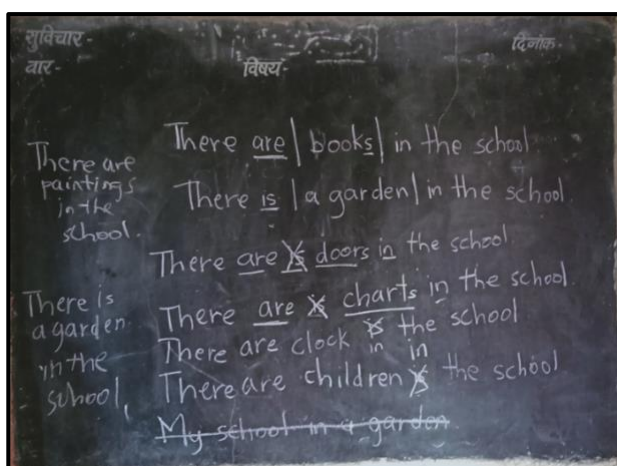 सुविचार-
दिनांक-
वार-
विषय-
There are
paintings
in the
school.
There is
a garden
in the
school,
There are | books | in the school
There is | a garden | in the school
There are is doors in the school
There are x charts in the school
There are clock is in the school
There are children is in the school
My school in a garden.